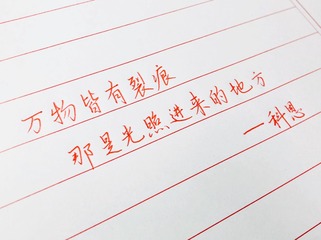 万物皆有裂痕
那是光照进来的地方
—科恩